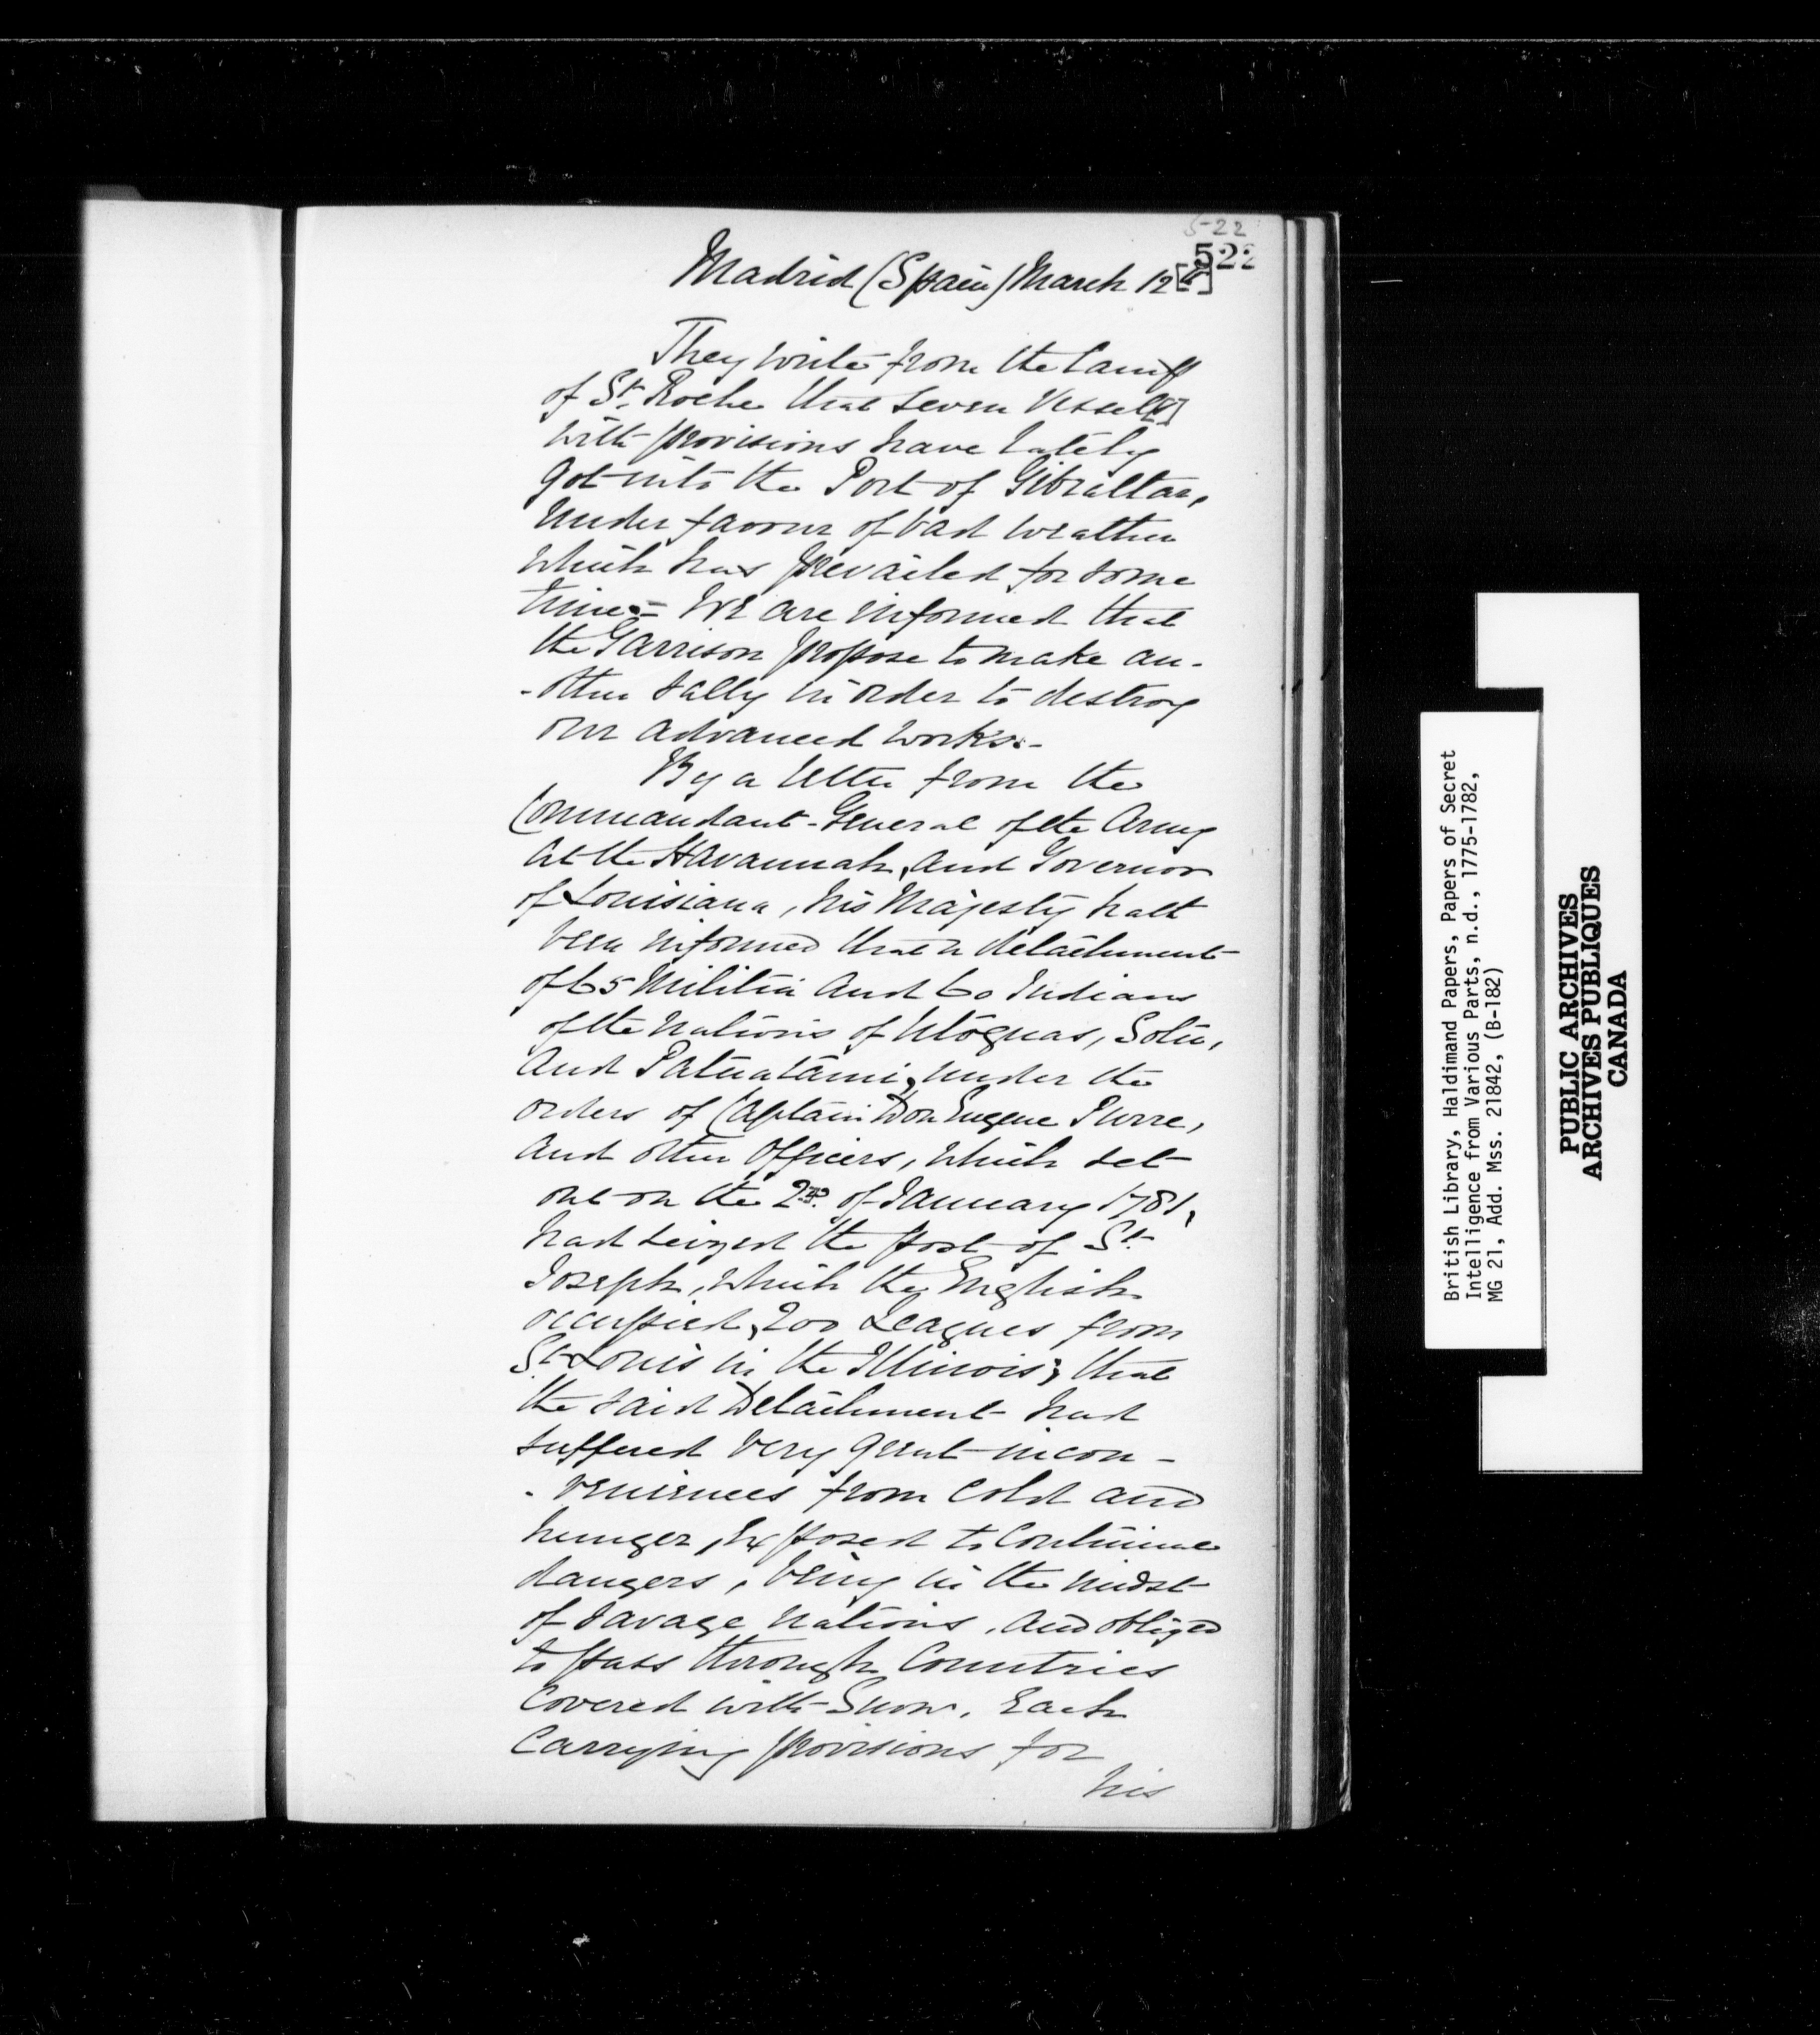 5-22
522
Madrid (Spain) March 12 [th]
They write from the Camp
of St. Roche that seven Vessel[s]
with provisions have lately
got into the Port of Gibraltar,
under favour of bad weather
which has prevailed for some
time.= We are informed that
the Garrison propose to make an-
-other sally in order to destroy
our advanced works.-
By a letter from the
Commandant-General of the Army
at the Havannah, and Governor
of Louisiana, his Majesty hath
been informed that a detachment
of 65 Militia and 60 Indians
of the nations of Utoguas, Sotu,
and Patuatami, under the
orders of Captain Don Eugene Purre,
and other Officers, which set
out on the 2nd. of January 1781,
had seized the post of St.
Joseph, which the English
occupied, 200 Leagues from
St. Louis in the Illinois; that
the said Detachment had
suffered very great incon-
-veniences from cold and
hunger, exposed to continual
dangers, being in the midst
of savage nations, and obliged
to pass through Countries
covered with Snow, Each
Carrying provisions for
his
British Library, Haldimand Papers, Papers of Secret
Intelligence from Various Parts, n.d., 1775-1782,
MG 21, Add. Mss. 21842, (B-182)
PUBLIC ARCHIVES
ARCHIVES PUBLIQUES
CANADA